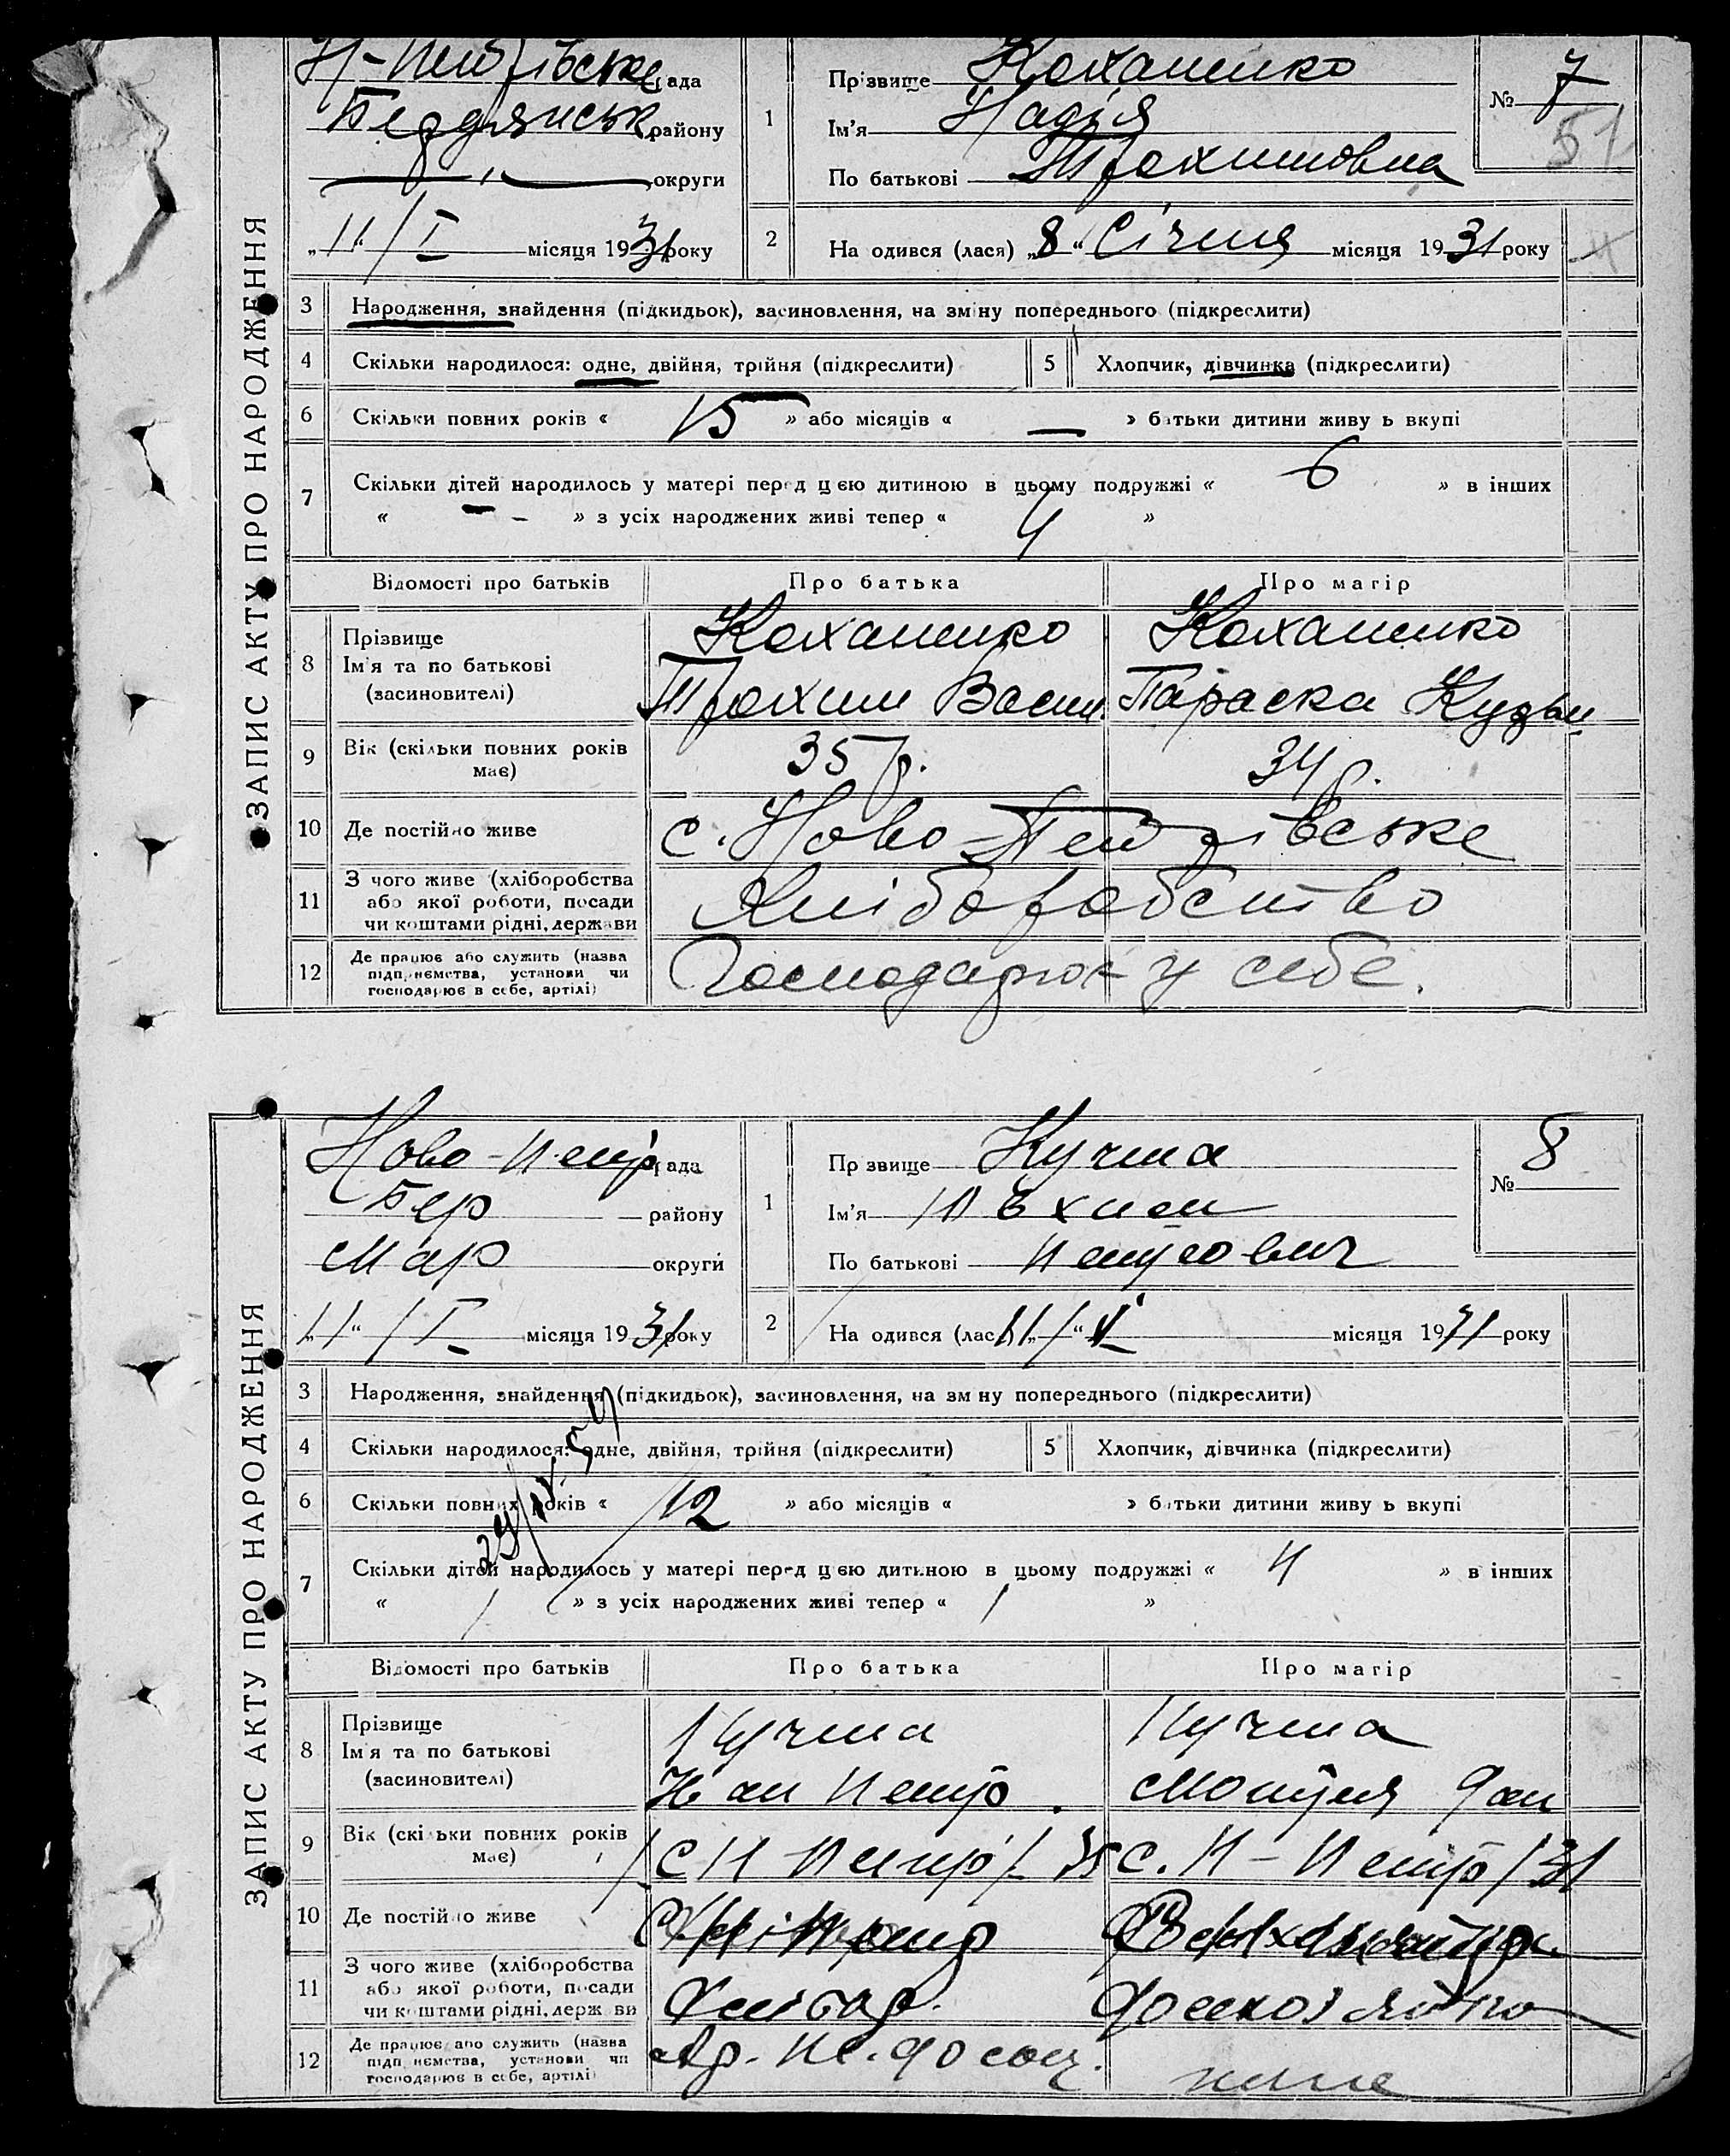 ЗАПИС АКТУ ПРО НАРОДЖЕННЯ
Н-Петрівське рада
Бердянськ району
округи
„11“ / I місяця 1931 року
1
Прізвище Коханенко
Ім'я Надія
По батькові Трохимовна
№ 7
51
2
На одився (лася) „8“ Січня місяця 1931 року
3 Народження, знайдення (підкидьок), засиновлення, на зміну попереднього (підкреслити)
4 Скільки народилося: одне, двійня, трійня (підкреслити) 5 Хлопчик, дівчинка (підкреслити)
6 Скільки повних років « 15 » або місяців « — » батьки дитини живу ь вкупі
7 Скільки дітей народилось у матері перед цією дитиною в цьому подружжі « 6 » в інших
« — - » з усіх народжених живі тепер « 4 »
Відомості про батьків Про батька Про матір
8 Прізвище Коханенко Коханенко
Ім'я та по батькові Трохим Васил. Параска Кузьм.
(засиновителі)
9 Вік (скільки повних років має) 35 р. 34 р.
10 Де постійно живе с. Ново-Петрівське
11 З чого живе (хліборобства
або якої роботи, посади Хліборобство
чи коштами рідні, держави
12 Де працює або служить (назва
підприємства, установи чи Господарює у себе.
господарює в себе, артілі)
ЗАПИС АКТУ ПРО НАРОДЖЕННЯ
Ново-Петр рада
Бер району
Мар округи
„11“ / I місяця 1931 року
1
Пр звище Кучма
Ім'я
По батькові
№ 8
2
На одився (лас 11 / I місяця 1931 року
3 Народження, знайдення (підкидьок), засиновлення, на зм ну попереднього (підкреслити)
4 Скільки народилося: одне, двійня, трійня (підкреслити) 5 Хлопчик, дівчинка (підкреслити)
6 Скільки повних років « 12 » або місяців « » батьки дитини живу ь вкупі
7 Скільки дітей народилось у матері перед цією дитиною в цьому подружжі « 4 » в інших
« / » з усіх народжених живі тепер « / »
Відомості про батьків Про батька Про матір
8 Прізвище Кучма Кучма
Ім'я та по батькові Петр Мотря
(засиновителі)
9 Вік (скі ьки повних років має) с Н-Петр / 35 с. Н-Петр / 31
10 Де постій о живе
11 З чого живе (хліборобства
або якої роботи, посади Хлібор. домхозяйка
чи к штами рідні, держ ви
12 Де працює або служить (назва
підп иємства, установи чи
господарює в себе, артілі)